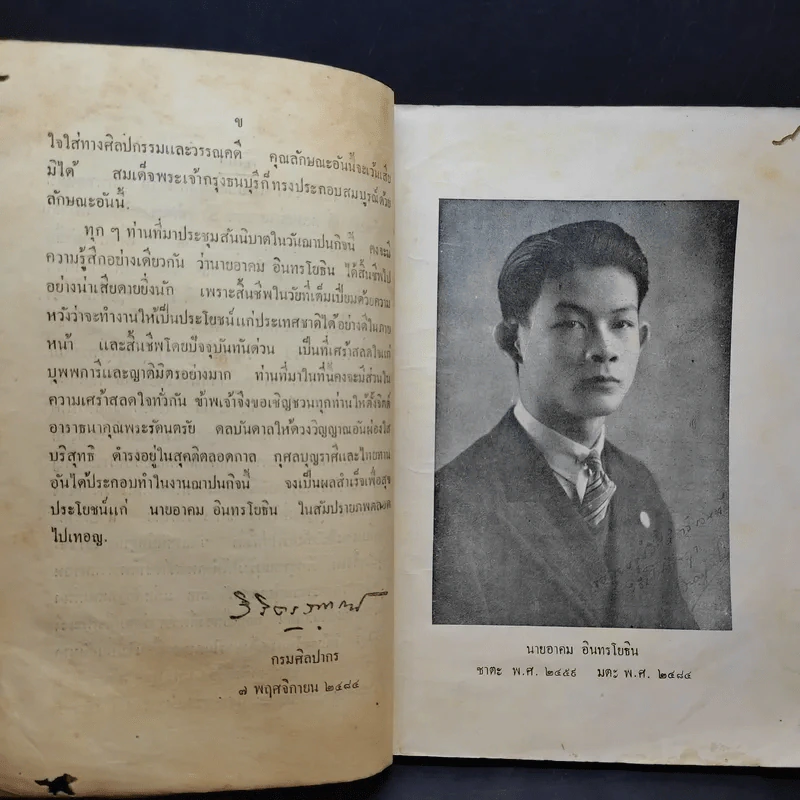 ข
ใจใส่ทางศิลปกรรมและวรรณคดี คุณลักษณะอันนี้จะเว้นเสีย
มิได้ สมเด็จพระเจ้ากรุงธนบุรีก็ทรงประกอบสมบูรณ์ด้วย
ลักษณะอันนี้.
ทุก ๆ ท่านที่มาประชุมสันนิบาตในวันฌาปนกิจนี้ คงจะมี
ความรู้สึกอย่างเดียวกัน ว่านายอาคม อินทรโยธิน ได้สิ้นชีพไป
อย่างน่าเสียดายยิ่งนัก เพราะสิ้นชีพในวัยที่เต็มเปี่ยมด้วยความ
หวังว่าจะทำงานให้เป็นประโยชน์แก่ประเทศชาติได้อย่างดีในภาย
หน้า และสิ้นชีพโดยปัจจุบันทันด่วน เป็นที่เศร้าสลดใจแก่
บุพพการีและญาติมิตรอย่างมาก ท่านที่มาในที่นี้คงจะมีส่วนใน
ความเศร้าสลดใจทั่วกัน ข้าพเจ้าจึงขอเชิญชวนทุกท่านให้ตั้งจิตต์
อาราธนาคุณพระรัตนตรัย ดลบันดาลให้ดวงวิญญาณอันผ่องใส
บริสุทธิ ดำรงอยู่ในสุคติตลอดกาล กุศลบุญราศีและไทยทาน
อันได้ประกอบทำในงานฌาปนกิจนี้ จงเป็นผลสำเร็จเพื่อสุข
ประโยชน์แก่ นายอาคม อินทรโยธิน ในสัมปรายภพตลอด
ไปเทอญ.
กรมศิลปากร
๗ พฤศจิกายน ๒๔๘๔
นายอาคม อินทรโยธิน
ชาตะ พ.ศ. ๒๔๕๙ มตะ พ.ศ. ๒๔๘๔